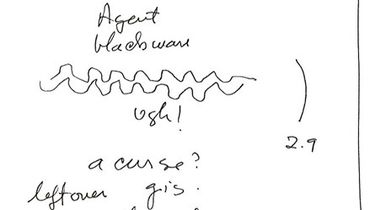 Agent
blackware
ugh!
2.9
a curse?
leftover gis.